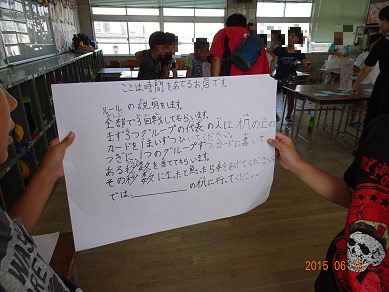 ここは時間をあてるお店です。
ルールの説明をします。
全部で3回戦してもらいます。
まず3つグループの代表の人は机の上の
カードを1まいずつひいてください。
つぎに、1つのグループずつ、カードに書いて
ある秒数を当ててもらいます。
その秒数になったと思ったら手をあげてください。
では、________の机に行ってください。
2015 06